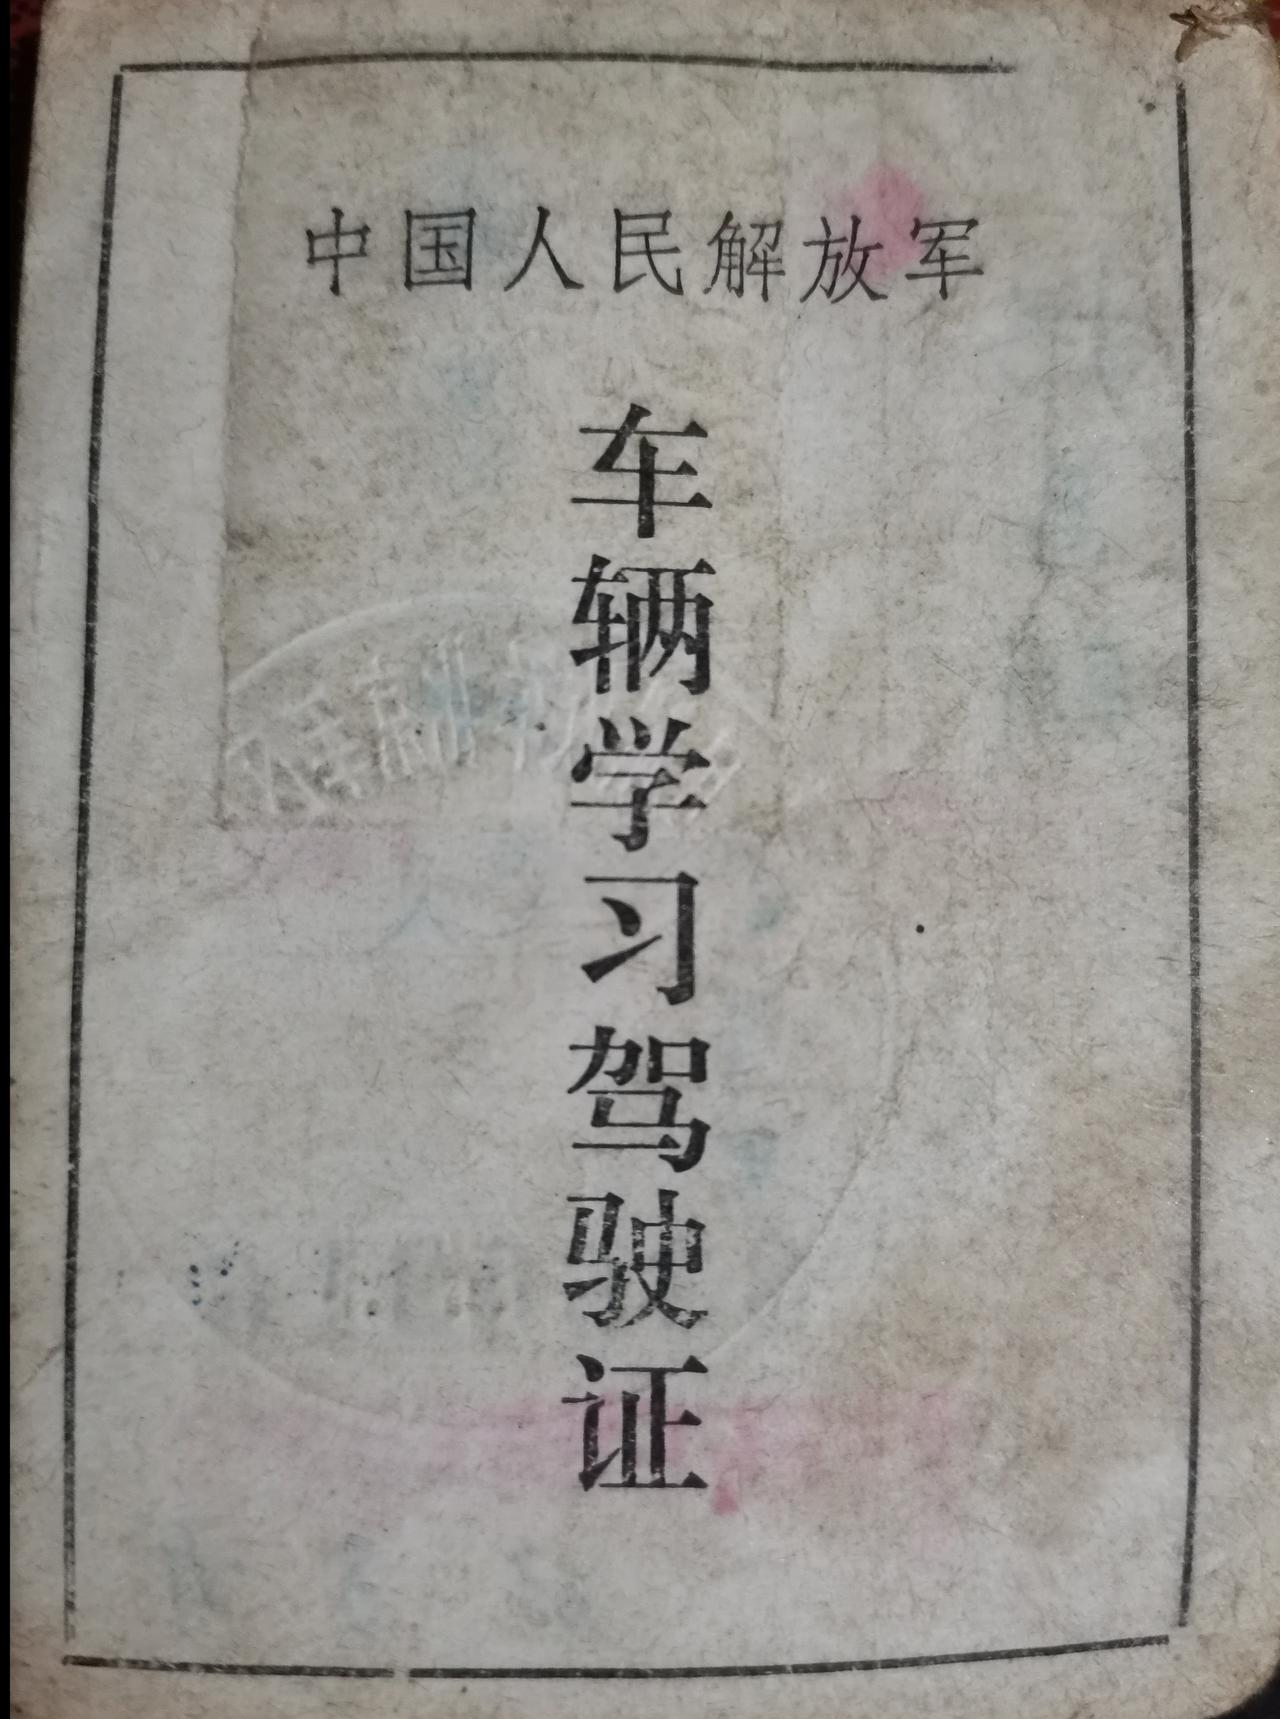 中国人民解放军
车辆学习驾驶证